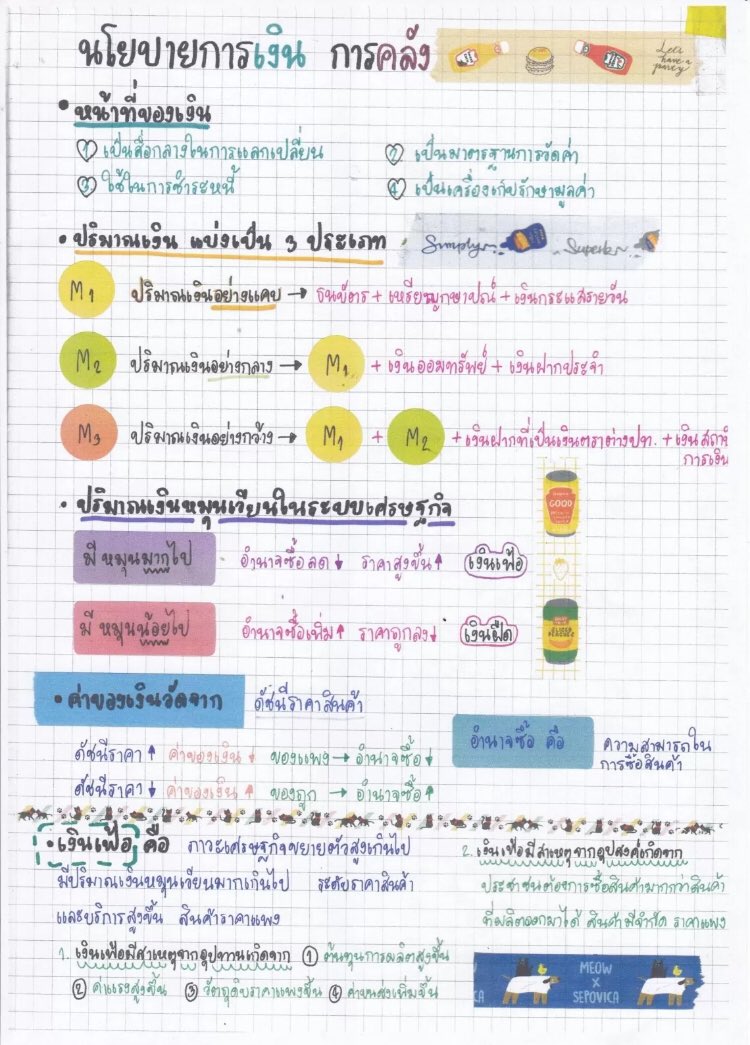 นโยบายการเงิน การคลัง
Let's have a party
• หน้าที่ของเงิน
① เป็นสื่อกลางในการแลกเปลี่ยน ② เป็นมาตรฐานการวัดค่า
③ ใช้ในการชำระหนี้ ④ เป็นเครื่องเก็บรักษามูลค่า
• ปริมาณเงิน แบ่งเป็น 3 ประเภท
Simply Superior
M1 ปริมาณเงินอย่างแคบ → ธนบัตร + เหรียญกษาปณ์ + เงินกระแสรายวัน
M2 ปริมาณเงินอย่างกลาง → M1 + เงินออมทรัพย์ + เงินฝากประจำ
M3 ปริมาณเงินอย่างกว้าง → M1 + M2 + เงินฝากที่เป็นเงินตราต่างปท. + เงินสถาบั
การเงิน
• ปริมาณเงินหมุนเวียนในระบบเศรษฐกิจ
GOOD
มี หมุนมากไป อำนาจซื้อลด ↓ ราคาสูงขึ้น ↑ เงินเฟ้อ
มี หมุนน้อยไป อำนาจซื้อเพิ่ม ↑ ราคาถูกลง ↓ เงินฝืด
SLICED PEACHES
• ค่าของเงินวัดจาก ดัชนีราคาสินค้า
อำนาจซื้อ คือ ความสามารถใน
การซื้อสินค้า
ดัชนีราคา ↑ ค่าของเงิน ↓ ของแพง → อำนาจซื้อ ↓
ดัชนีราคา ↓ ค่าของเงิน ↑ ของถูก → อำนาจซื้อ ↑
• เงินเฟ้อ คือ ภาวะเศรษฐกิจขยายตัวสูงเกินไป
มีปริมาณเงินหมุนเวียนมากเกินไป ระดับราคาสินค้า
และบริการสูงขึ้น สินค้าราคาแพง
1. เงินเฟ้อมีสาเหตุจากอุปทานเกิดจาก ① ต้นทุนการผลิตสูงขึ้น
② ค่าแรงสูงขึ้น ③ วัตถุดิบราคาแพงขึ้น ④ ค่าขนส่งเพิ่มขึ้น
2. เงินเฟ้อมีสาเหตุจากอุปสงค์เกิดจาก
ประชาชนต้องการซื้อสินค้ามากกว่าสินค้า
ที่ผลิตออกมาได้ สินค้ามีจำกัด ราคาแพง
MEOW
X
SEPOVICA